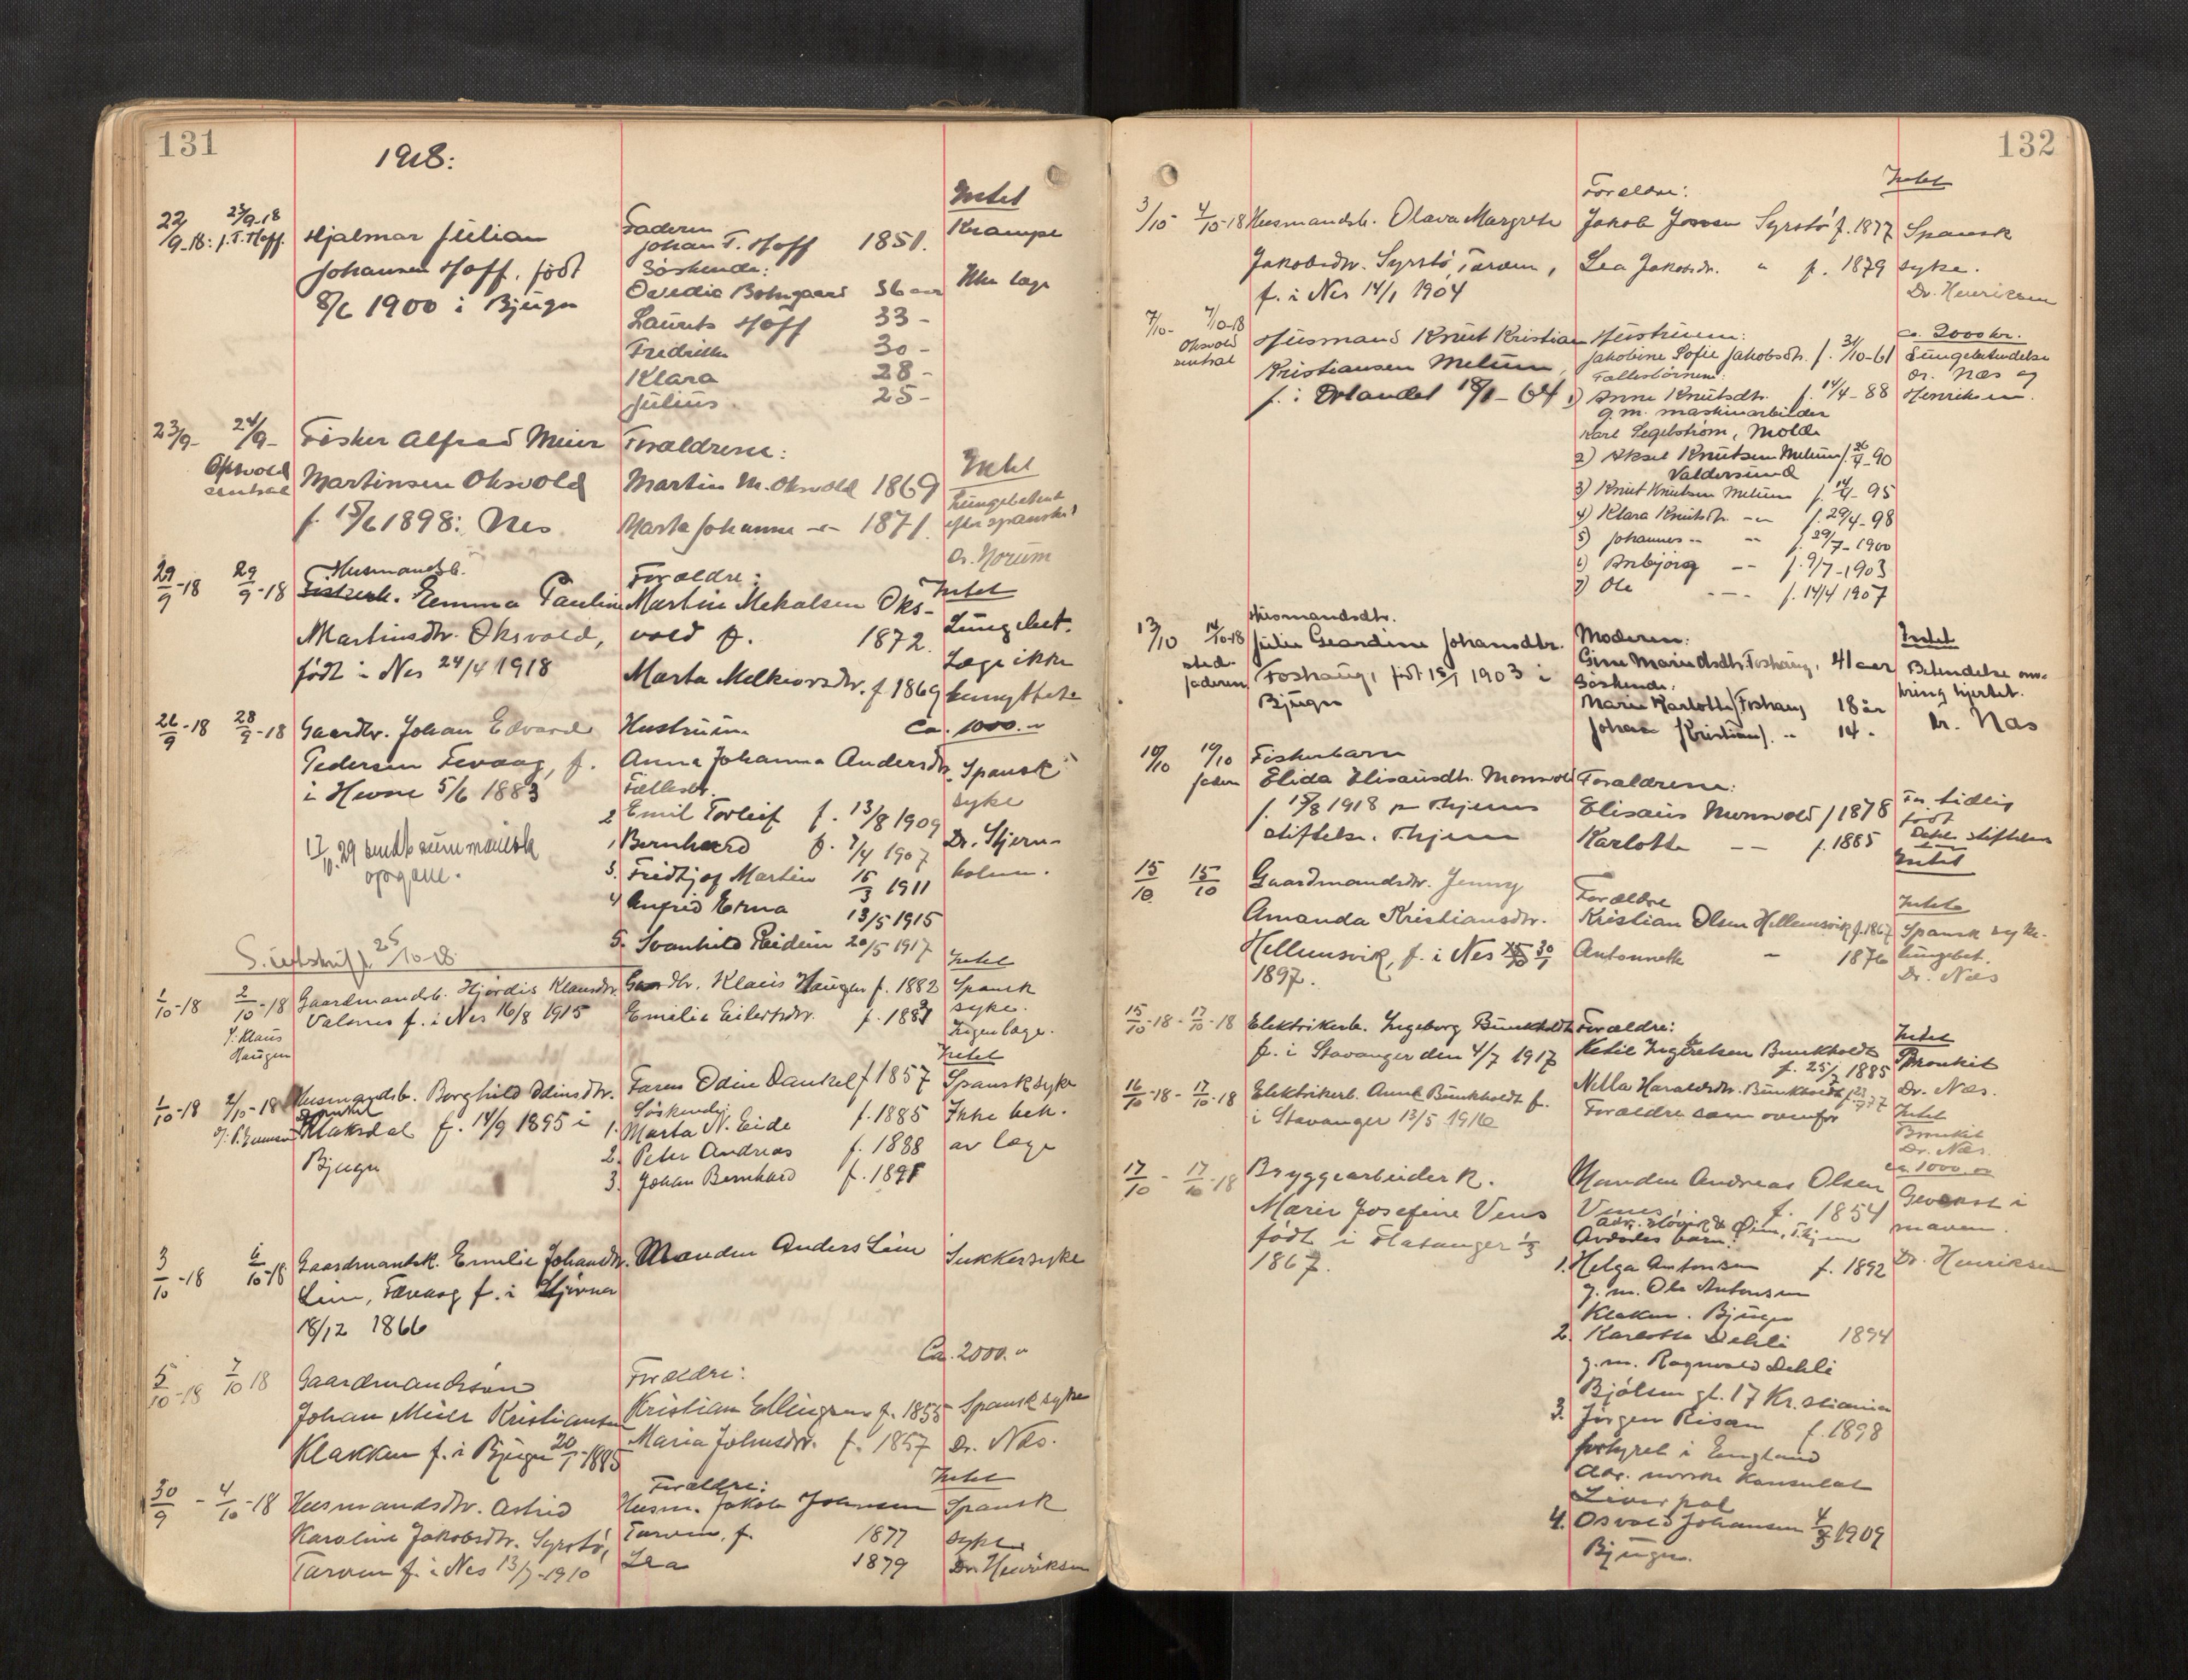 131
1918:
22/9-18: 23/9-18 J. T. Hoff.
Hjalmar Julian
Johansen Hoff, født
8/6 1900 i Bjugn
Faderen
Johan T. Hoff 1851.
Søskende:
Ovedia Botngaard 36 aar
Laurits Hoff 33 -
Fredrikke 30 -
Klara 28 -
Julius 25 -
Intet
Krampe
Ikke læge
23/9- 24/9-
Oksvold
central
Fisker Alfred Meier
Martinsen Oksvold
f. 15/6 1898: Nes
Forældrene:
Martin M. Oksvold 1869
Marta Johanna -"- 1871.
Intet
Lungebetent
efter spansk
Dr. Norum
29/9-18 29/9-18
Husmandsb.
Fiskerb. Emma Pauline
Martinsdtr. Oksvold,
født i Nes 24/4 1918
Forældre:
Martin Mekalsen Oks-
vold f. 1872.
Marta Melkiorsdtr. f 1869
Intet
Lungebet.
Læge ikke
benyttet
26/9-18 28/9-18
Gaardbr. Johan Edvard
Pedersen Fevaag, f.
i Hevne 5/6 1883
Hustruen
Anna Johanna Andersdtr
Fællesb.
2 Emil Torleif f. 13/8 1909
1, Bernhard f. 7/4 1907
3. Fridtjof Martin 15/3 1911
4 Anfrid Erna 13/5 1915
5. Svanhild Reidun 20/5 1917
Ca. 1000.-
Spansk
syke
Dr. Stjern-
holm.
29 sendt summarisk
opgave.
S. utskrift 25/10-18
1/10-18 2/10-18
J. Klaus
Haugen
Gaardmandsb. Hjørdis Klausdtr.
Valsnes f. i Nes 16/8 1915
Gaardbr. Klaus Haugen f. 1882
Emilie Eilertsdtr. f. 1887
Intet
Spansk
syke.
Ingen læge.
1/10-18 2/10-18
Husmandsb. Borghild Odinsdtr.
Dankel
Klaksdal f. 14/9 1895 i
Bjugn
Faren Odin Dankel f 1857
Søskende:
1. Marta N. Eide f. 1885
2. Peter Andreas f. 1888
3. Johan Bernhard f. 1891
Intet
Spansksyke
Ikke beh.
av læge
3/10-18 6/10-18
Gaardmandsk. Emilie Johansdtr.
Lien, Fævaag f. i Stjørna
18/12 1866
Manden Anders Lien
Sukkersyke
5/10-18 7/10 18
Gaardmandssøn
Johan Meier Kristiansen
Klakken f. i Bjugn 20/1-1885
Forældre:
Kristian Ellingsen f. 1855
Maria Johnsdtr. f. 1857
Ca. 2000.-
Spansk syke
Dr. Næs.
30/9 - 4/10-18
Husmandsdtr. Astrid
Karoline Jakobsdtr. Syrstø,
Tarven f. i Nes 13/7-1910
Forældre:
Husm. Jakob Johnsen
Tarven, f. 1877
Lea 1879
Intet
Spansk
syke
Dr. Henriksen
132
3/10 4/10-18
Husmandsb. Olava Margrete
Jakobsdtr. Syrstø, Tarven,
f. i Nes 14/1 1904
Forældre:
Jakob Jonsen Syrstø f. 1877
Lea Jakobsdr. " f. 1879
Intet
Spansk
syke.
Dr. Henriksen
7/10- 7/10-18
Oksvold
sentral
Husmand Knut Kristian
Kristiansen Melum,
f. i Ørlandet 18/1-64
Hustruen:
Jakobine Sofie Jakobsdtr. f. 31/10-61
Fællesbørnene:
1) Anne Knutsdtr. f. 14/4-88
g.m. maskinarbeider
Karl Segelstrøm, Molde
2) Aksel Knutsen Melum f. 26/4-90
Valdersund
3) Knut Knutsen Melum f. 14/4-95
4) Klara Knutsdtr. -"- f. 29/4-98
5) Johannes -"- -"- f. 29/7-1900
6) Anbjørg -- f. 9/7-1903
7) Ole --- f. 14/4 1907
ca. 2000 kr.
Lungebetendelse
Dr. Næs og
Henriksen.
13/10 14/10-18
sted
faderen
Husmandsdtr.
Julie Geardine Johansdtr.
Foshaug, født 15/1 1903 i
Bjugn
Moderen:
Gine Marie Olsdtr. Foshaug, 41 aar
Søskende:
Marie Karlotte Foshaug 18 år
Johan (Kristian). " 14 -
Intet
Betendelse om-
kring hjertet.
Dr. Næs
10/10 14/10
faderen
Fiskerbarn
Elida Elisausdtr. Monsvold
f. 15/8 1918 på Thjems
stiftelse. Thjem
Forældrene:
Elisæus Monsvold f 1878
Karlotte -- f. 1885
For tidlig
født
15/10 15/10
Gaardmandsdtr. Jenny
Amanda Kristiansdtr.
Hellemsvik, f. i Nes 30/1
1897.
Forældre
Kristian Olsen Hellemsvik f. 1867
Antonnette - 1876
Intet
Intet
Spansk syke.
Lungebet.
Dr. Næs
15/10-18 - 17/10-18
Elektrikerb. Ingeborg Bunkholdt
f. i Stavanger den 4/7 1917
Forældre:
Ketil Ingbretsen Bunkholdt
f. 25/2 1885
Nella Haraldsdtr. Bunkholdt
Intet
Bronkit
Dr. Næs.
16/10-18 - 17/10-18
Elektrikerb. Anne Bunkholdt f.
i Stavanger 13/5 1916
Forældre som ovenfor
Intet
Bronkit
Dr. Næs.
17/10 - 17/10-18
Bryggearbeider k.
Marie Josefine Venes
født i Flatanger 1/3
1867.
Manden Andreas Olsen
Venes f. 1854
Avdødes barn:
1. Helga Antonsen f. 1892
g. m. Ole Antonsen
Klakken. Bjugn
2. Karlotte Dehli 1894
g. m. Ragnvald Dehli
Bjølsen gt. 17 Kr.stiania
3. Jørgen Risan f. 1898
forhyret i England
Adr. norske Konsulat
Liverpol
4. Osvald Johansen 4/3 1909
Bjugn.
ca 1000.00
Gevekst i
maven.
Dr. Henriksen